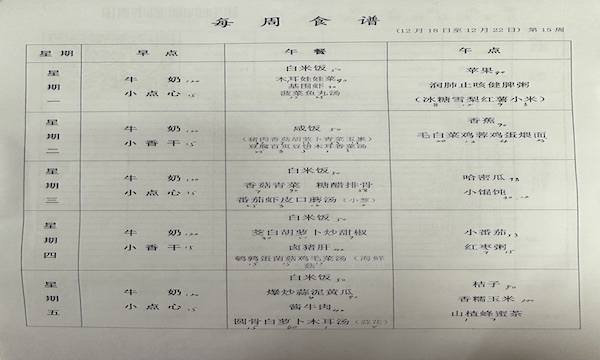 每周食谱
(12月18日至12月22日) 第15周
星期 早点 午餐 午点
星期一 牛奶 小点心
白米饭
木耳娃娃菜
基围虾
菠菜鱼丸汤
苹果
润肺止咳健脾粥
(冰糖雪梨红薯小米)
星期二 牛奶 小香干
咸饭
(猪肉香菇胡萝卜青菜玉米)
香蕉
毛白菜鸡蓉鸡蛋煨面
星期三 牛奶 小点心
白米饭
香菇青菜 糖醋排骨
番茄虾皮口蘑汤(小葱)
哈密瓜
小馄饨
星期四 牛奶 小香干
白米饭
茭白胡萝卜炒甜椒
卤猪肝
鹌鹑蛋菌菇鸡毛菜汤(海鲜菇
小番茄
红枣粥
星期五 牛奶 小点心
白米饭
爆炒蒜泥黄瓜
酱牛肉
圆骨白萝卜木耳汤(蒜花)
桔子
香糯玉米
山楂蜂蜜茶